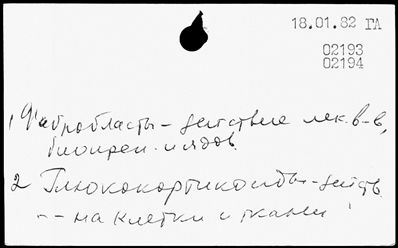 18.01.82 ГА
02193
02194
1 Фибробласты – действие лек. в-в,
биопреп. и ядов.
2 Глюкокортикоиды – действ.
-- на клетки и ткани